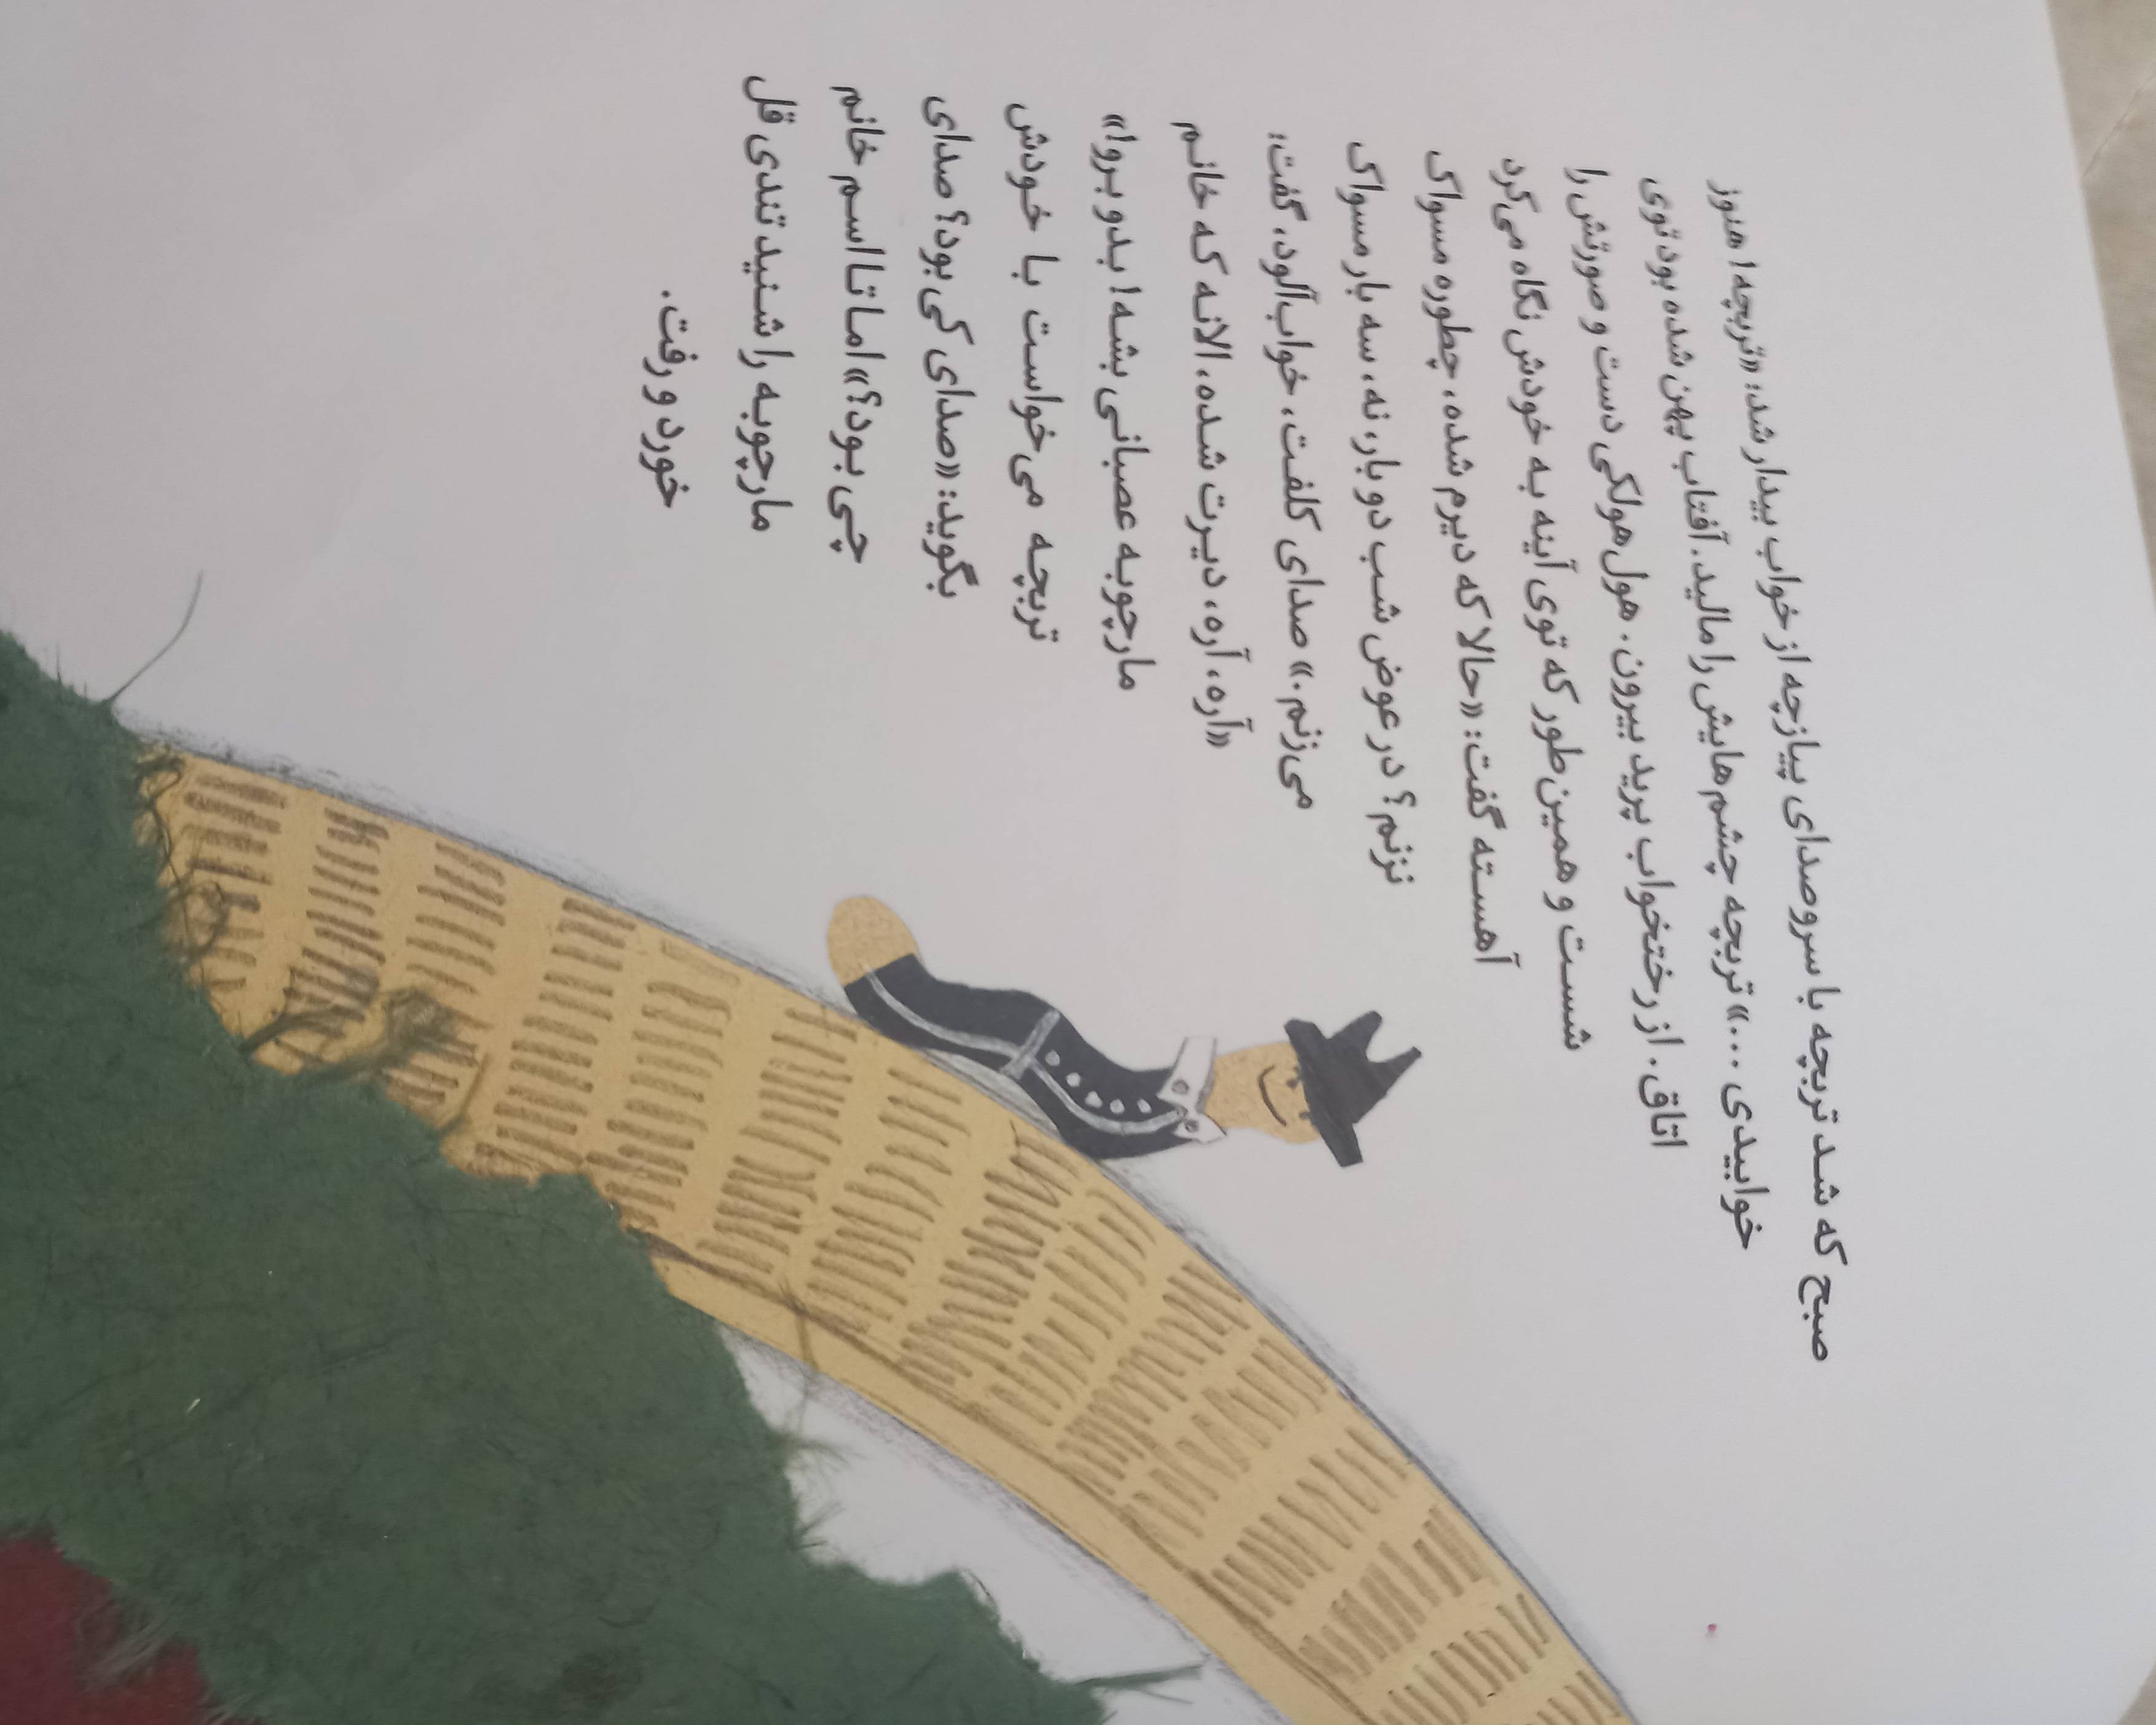 صبح که شد تربچه با سروصدای پیازچه از خواب بیدار شد: «تربچه! هنوز
خوابیدی ...» تربچه چشم‌هایش را مالید. آفتاب پهن شده بود توی
اتاق. از رختخواب پرید بیرون. هول‌هولکی دست و صورتش را
شست و همین‌طور که توی آینه به خودش نگاه می‌کرد
آهسته گفت: «حالا که دیرم شده، چطوره مسواک
نزنم؟ در عوض شب دو بار، نه، سه بار مسواک
می‌زنم.» صدای کلفت، خواب‌آلود، گفت:
«آره، آره، دیرت شده، الانه که خانم
مارچوبه عصبانی بشه! بدو برو!»
تربچه می‌خواست با خودش
بگوید: «صدای کی بود؟ صدای
چی بود؟» اما تا اسم خانم
مارچوبه را شنید تندی قل
خورد و رفت.